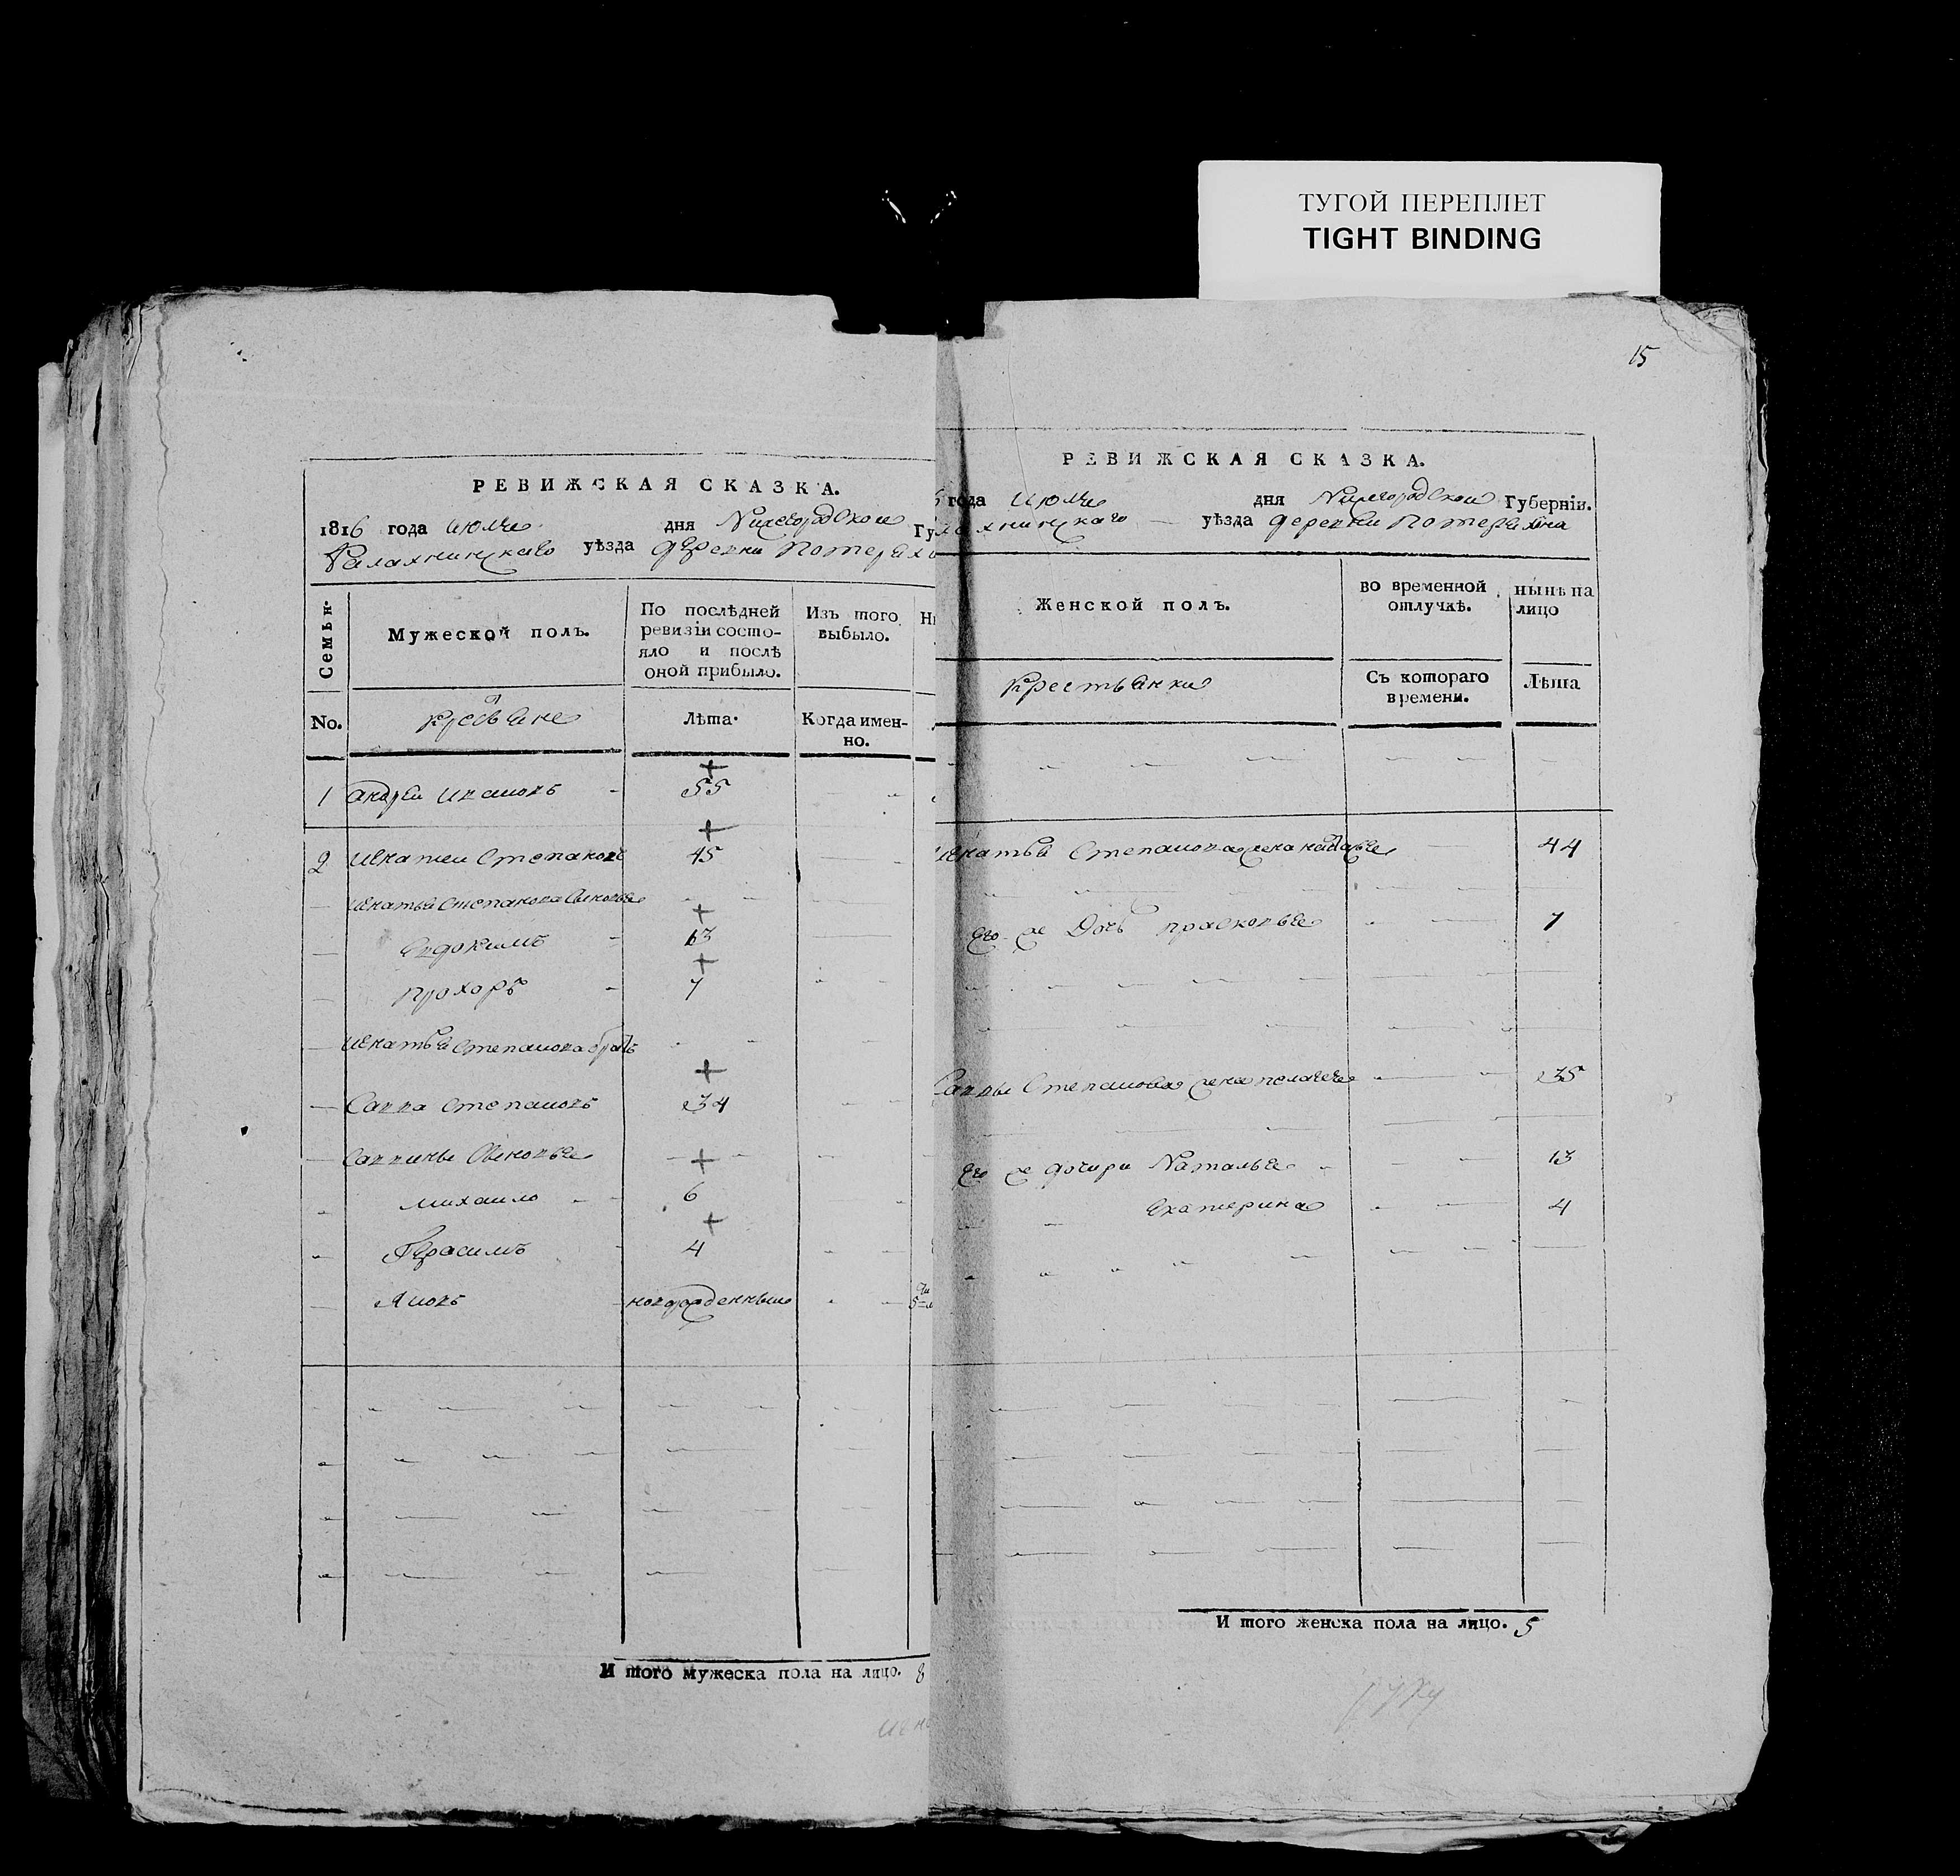 ТУГОЙ ПЕРЕПЛЕТ
TIGHT BINDING
РЕВИЖСКАЯ СКАЗКА.
1816 года июля дня Нижегородской Гу
Балахнинскаго уѣзда деревни Потеряхи
Семьи. Мужеской полъ. По послѣдней ревизіи состояло и послѣ оной прибыло. Изъ того выбыло. Ны
No. крестьяне Лѣта. Когда именно.
1 андрей ивановъ 55
2 игнатей степановъ 45
игнатья степанова сыновья
евдокимъ 13
прохоръ 7
игнатья степанова братъ
савва степановъ 34
саввины сыновья
михаило 6
Герасимъ 4
новорожденный
И того мужеска пола на лицо. 8
15
РЕВИЖСКАЯ СКАЗКА.
года июля дня Нижегородской Губерніи.
лахнинскаго уѣзда деревни Потеряхина
Женской полъ. во временной отлучкѣ. нынѣ на лицо
крестьянки Съ котораго времени. Лѣта
игнатья степанова жена 44
Его же дочь прасковья 7
саввы степанова жена пелагея 35
Его же дочери Наталья 13
екатерина 4
И того женска пола на лицо. 5